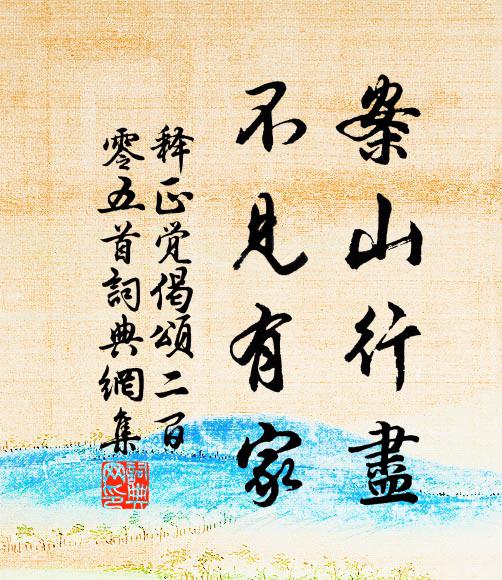 案山行盡
不見有家
释正觉偈頌二百
零五首詞典網集